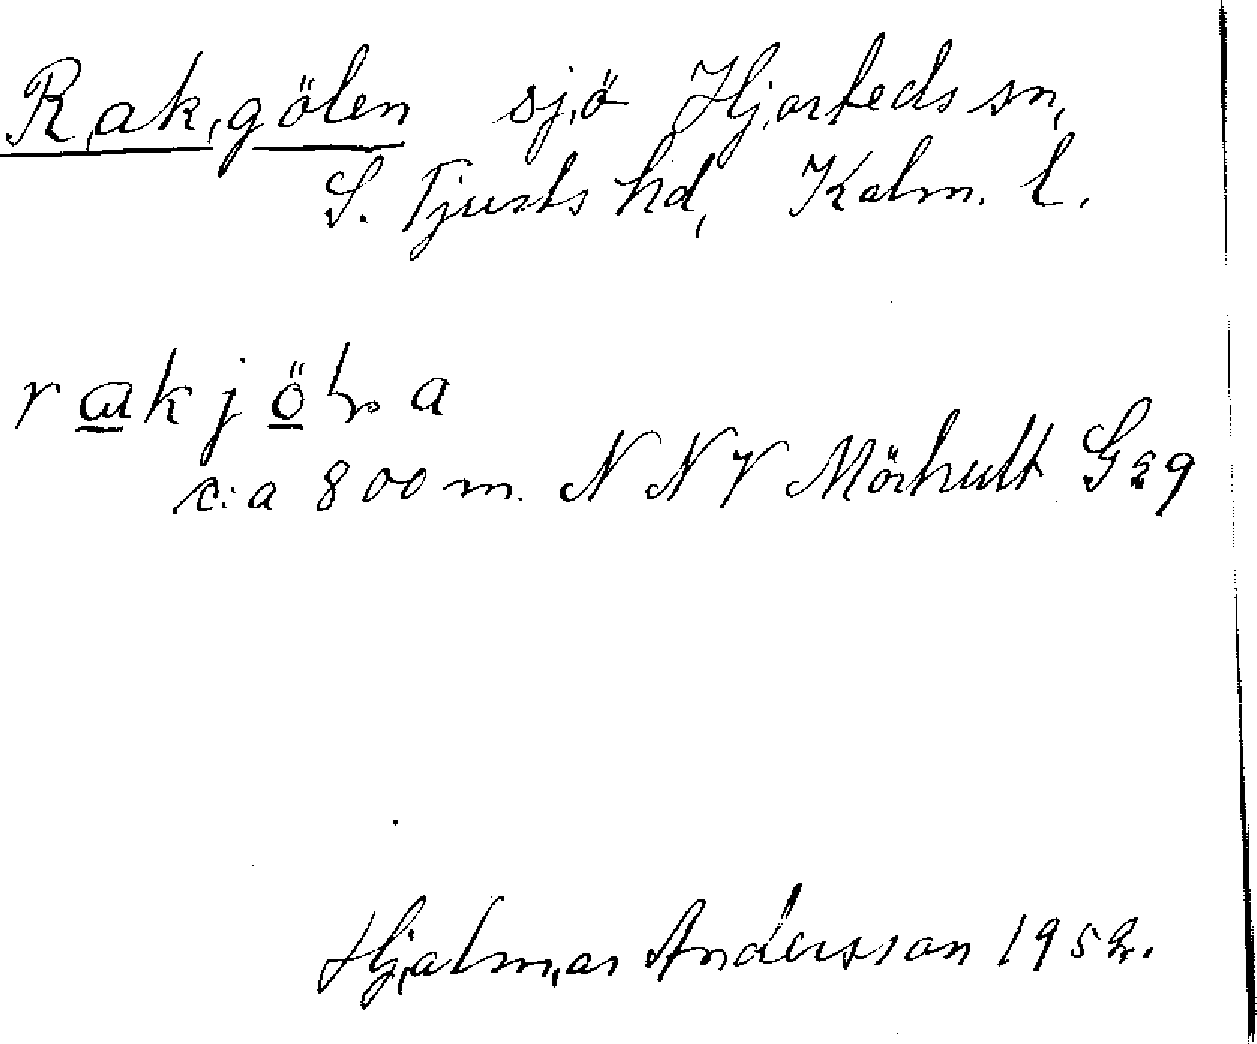 Rakgölen sjö Hjorteds sn,
S. Tjusts hd, Kalm. l.
rakjöla
c:a 800 m. NNV Mörhult
Hjalmar Andersson 1952.